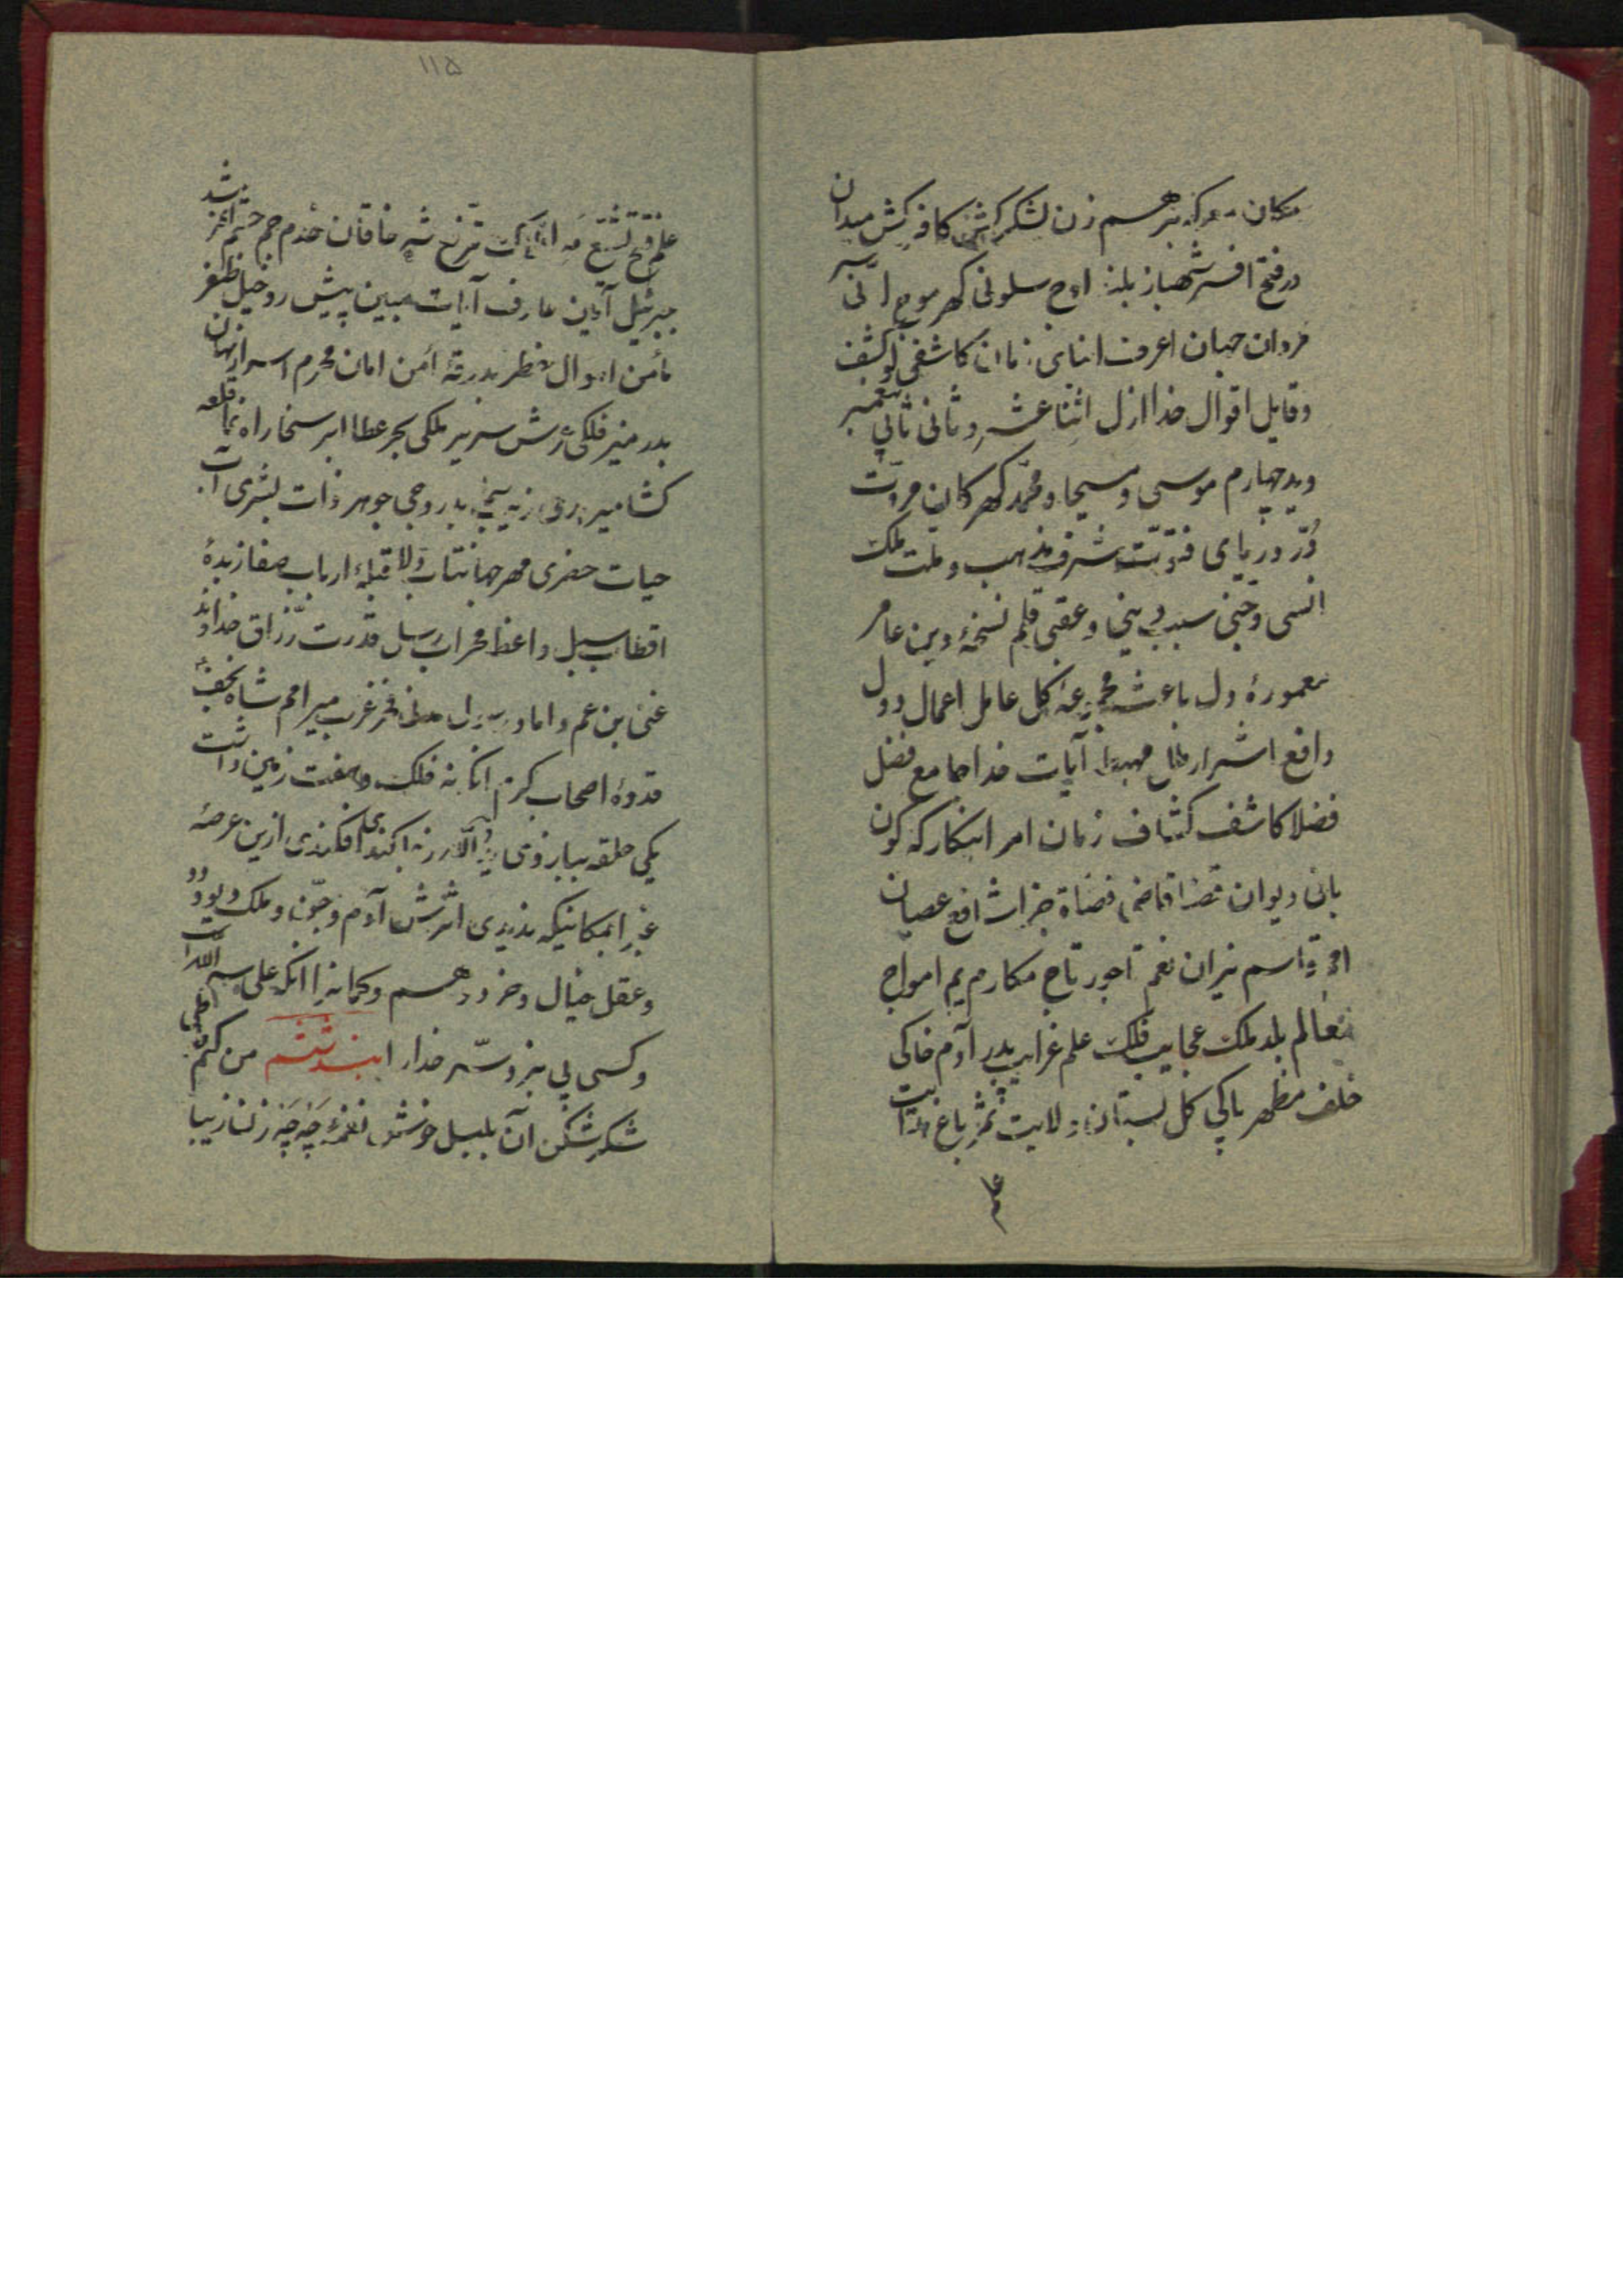 مکان معرکه برهم زن لشکرکش کافرکش میدان
در فتح افسر شهباز بلند اوج سلونی گهر موج انّی سر
مردان جهان اعرف ابنای زمان کاشفی لو کشف
و قایل اقوال خدا ازل اثنا عشر و ثانی ثانی پیغمبر
وید چهارم موسی و مسیحا و محمد گهر کان مروّت
دُرّ دریای فتوّت شرف مذهب و ملت ملک
انسی و جنی سبب دینی و عقبی قلم نسخهٔ دین عامر
معمورهٔ دل باعث مجموعهٔ کل عامل اعمال دول
دافع اشرار ملل مهبط آیات خدا جامع فضل
فضلا کاشف کشاف زمان امر ابتکار که کون
بانی دیوان قضا قاضی قضاة جزا شافع عصیان
امم قاسم نیران نعم تاجور تاج مکارم یم امواج
معالم بلد ملک عجایب فلک علم غرایب پدر آدم خاکی
خلف مظهر پاکی گل بستان ولایت ثمر باغ هدایت
علم
۱۱۵
خاقان خدم جم حشم
جبرئیل آئین عارف آیات مبین پیش رو خیل ظفر
مأمن اهوال خطر بدرقهٔ امن امان محرم اسرار نهان
بدر منیر فلکی عرش سریر ملکی بحر عطا ابر سخا راه نما قلعه
کشا میر روحی جوهر ذات بشری آب
حیات خضری مهر جهانتاب ولا قبلهٔ ارباب صفا زبدهٔ
اقطاب سبل واعظ محراب رسل قدرت رزّاق خداوند
غنی ابن عم و داماد رسول فخر عرب میر امم شاه نجف
قدوهٔ اصحاب کرم آنکه نه فلک و هفت زمین داشت
یکی حلقه ببازوی افکندی ازین عرصه
غبرا بمکانیکه ندیدی اثرش آدم و جن و ملک و دیو و دد
و عقل خیال و خرد و وهم و کمانرا آنکه علی سر اللّه است
و کسی پی نبرد سرّ خدا را بند ششم من کیم
شکر شکن آن بلبل خوش نغمهٔ چه چه زن زیبا